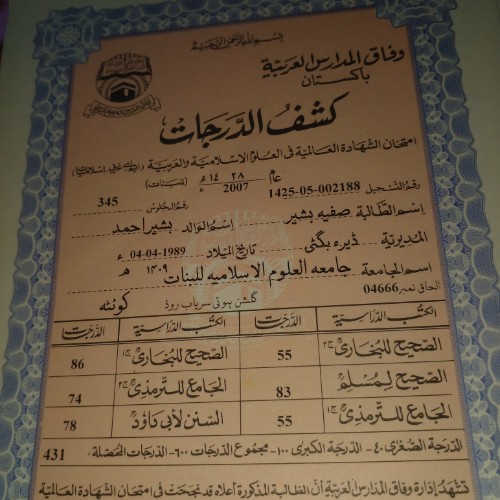 بسم الله الرحمن الرحيم
وفاق المدارس العربية
پاکستان
كشف الدرجات
امتحان الشهادة العالمية في العلوم الاسلامية والعربية
عام ١٤٢٨ هـ 2007 ء (للبنات)
رقم التسجيل 1425-05-002188 رقم الجلوس 345
اسم الطالبة صفیہ بشیر اسم الوالد بشیر احمد
المديرية ڈیرہ بگٹی تاريخ الميلاد 04-04-1989 ء
١٤٠٩ هـ
اسم الجامعة جامعہ العلوم الاسلامیہ للبنات
الحاق نمبر 04666 گلشن ہوٹی سریاب روڈ کوئٹہ
الكتب الدراسية الدرجات الكتب الدراسية الدرجات
الصحيح للبخاري ج٢ 55 الصحيح للبخاري ج١ 86
الصحيح لمسلم 83 الجامع للترمذي ج٢ 74
الجامع للترمذي ج١ 55 السنن لأبي داود 78
الدرجة الصغرى ٤٠- الدرجة الكبرى ١٠٠- مجموع الدرجات ٦٠٠- الدرجات المحصلة: 431
تشهد إدارة وفاق المدارس العربية أن الطالبة المذكورة أعلاه قد نجحت في امتحان الشهادة العالمية